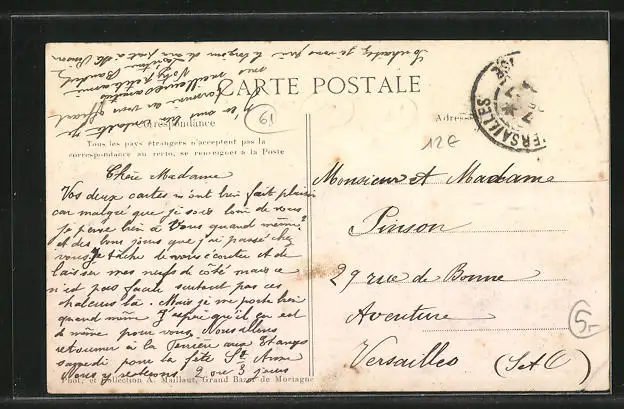 CARTE POSTALE
Correspondance
Tous les pays étrangers n'acceptent pas la
correspondance au recto, se renseigner à la Poste
Chère Madame
Vos deux cartes m'ont bien fait plaisir
car malgré que je sois loin de vous
je pense bien à Vous quand même
et des bons jours que j'ai passé chez
vous. Je tâche de vous écouter et de
laisser mes nerfs de côté mais ce
n'est pas facile surtout par ces
chaleurs là. Mais je me porte bien
quand même. J'espère qu'il en est
de même pour vous. Nous allons
retourner à la Perrière aux Etangs
samedi pour la fête Ste Anne
Nous y resterons 2 ou 3 jours
Phot. et Collection A. Maillaut, Grand Bazar de Mortagne
Souhaitez je vous prie le
meilleures amitiés
Votre petite amie
61
Adresse
12E
VERSAILLES
Monsieur et Madame
Pinson
29 rue de Bonne
Aventure
Versailles (S et O)
5-